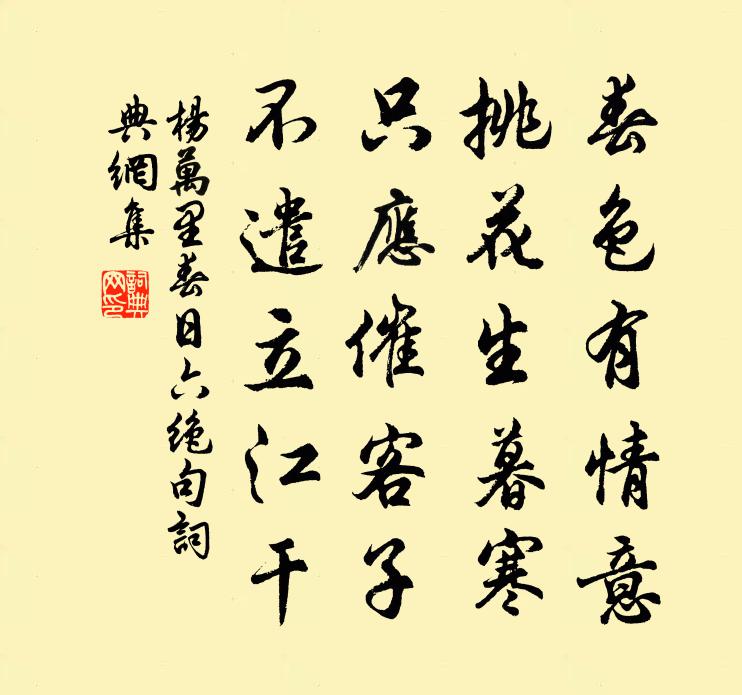 春色有情意
挑花生暮寒
只應催客子
不遣立江干
楊萬里春日六絕句詞
典網集
詞典網印